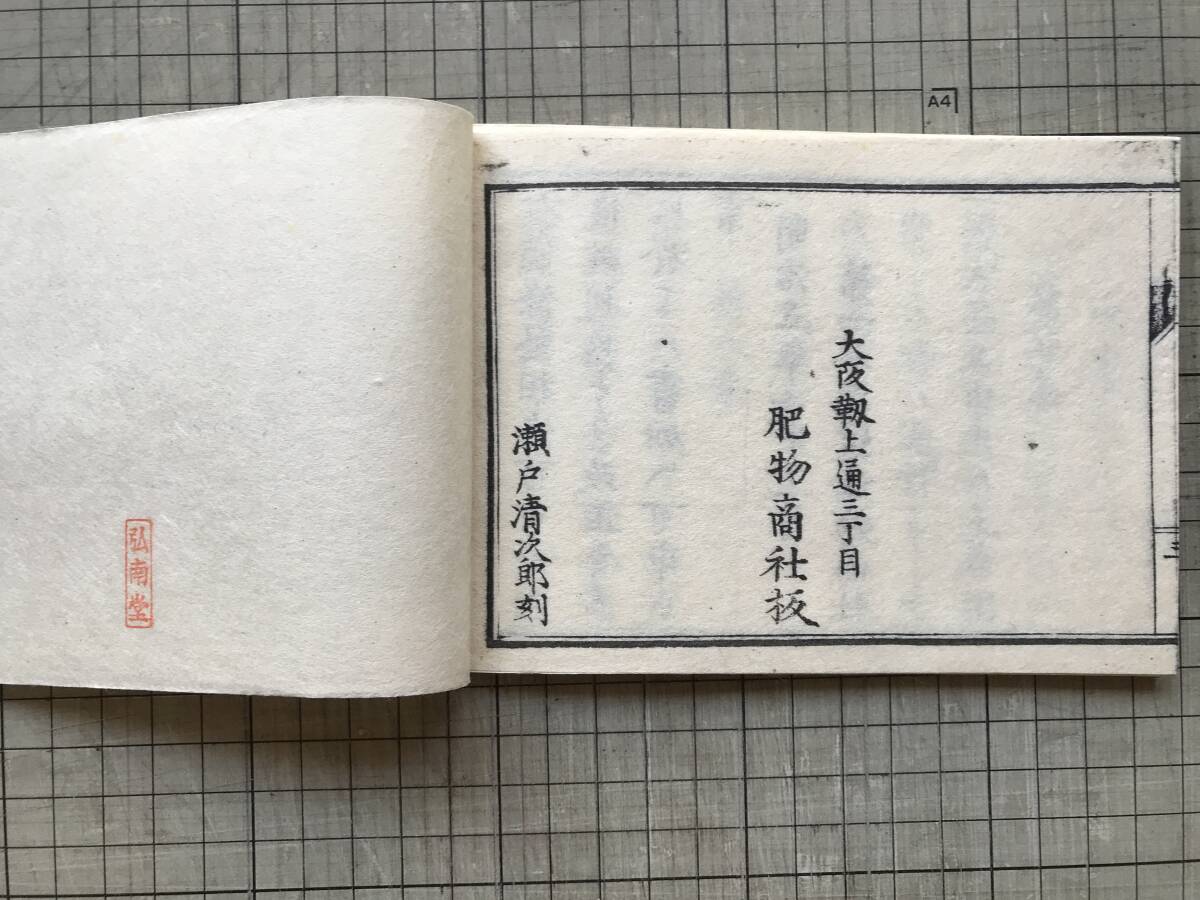 大阪靱上通三丁目
肥物商社板
瀬戸清次郎刻
三
弘南堂
A4